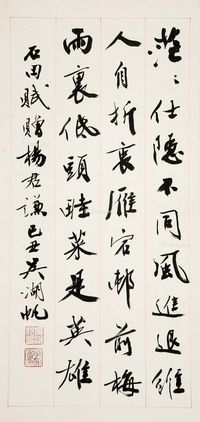 茫〻仕隱不同風進退維
人自折衷雁宕邨前梅
雨裏低頭畦菜是英雄
石田賦贈楊君謙己丑吳湖帆